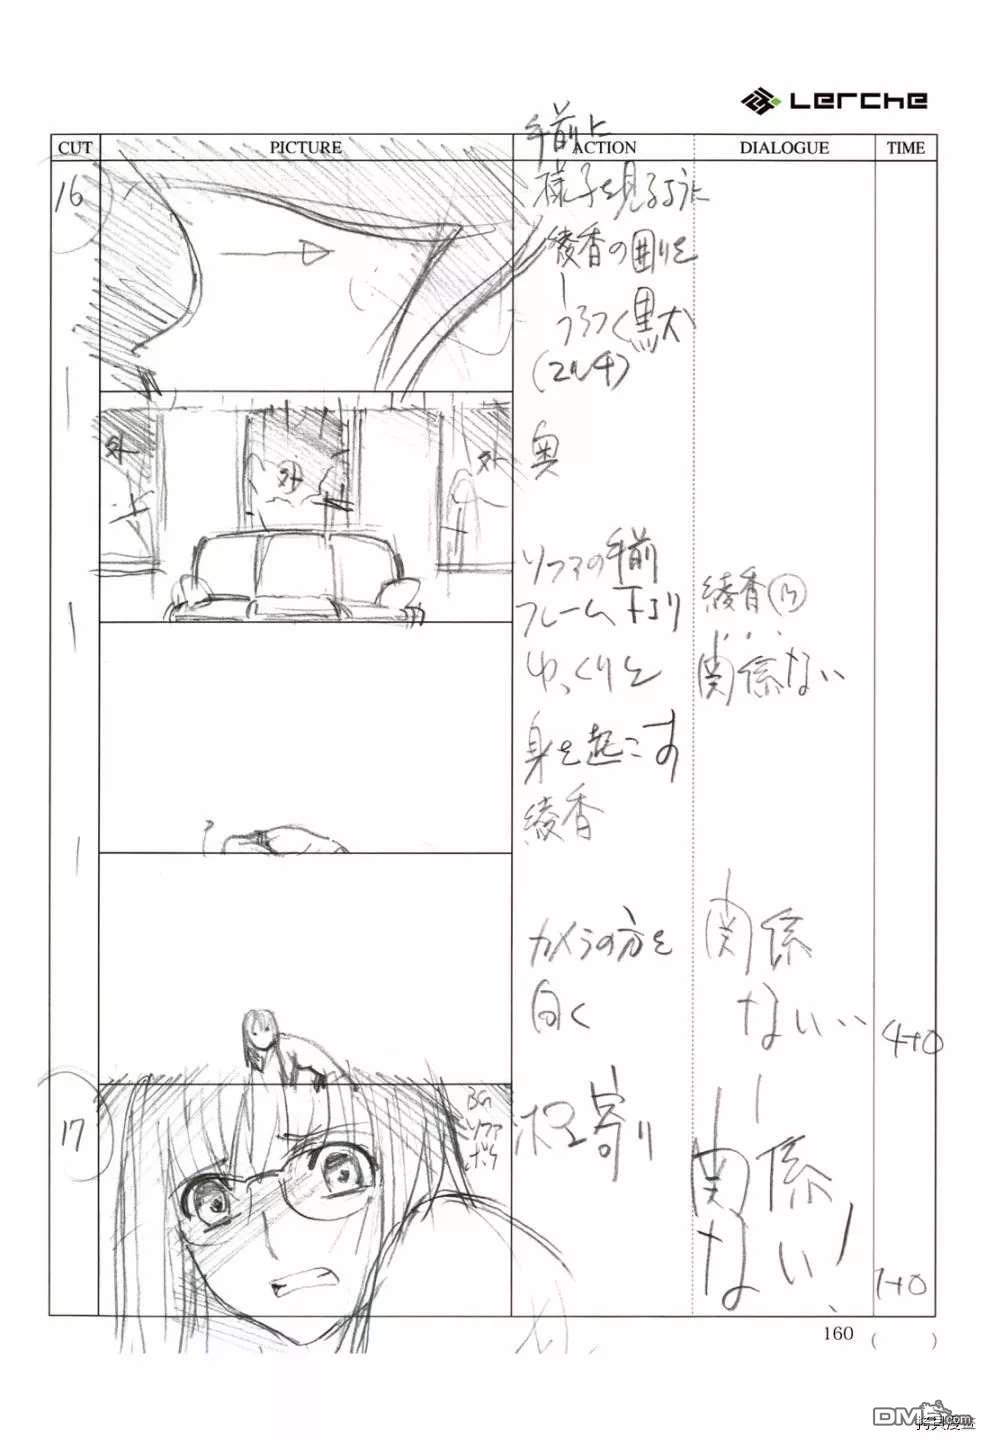 Lerche
CUT PICTURE ACTION DIALOGUE TIME
16
手前に
様子を見るように
綾香の囲りを
うろつく黒犬
(マルチ)
外
外
外
奥
ソファの手前
フレーム下より
ゆっくりと
身を起こす
綾香
綾香
関係ない
カメラの方を
向く
関係
ない…
4+0
17
BG
ソファ
ボケ
ポン寄り
関係
ない!
1+0
160 ( )
DM5.com
拷贝漫画